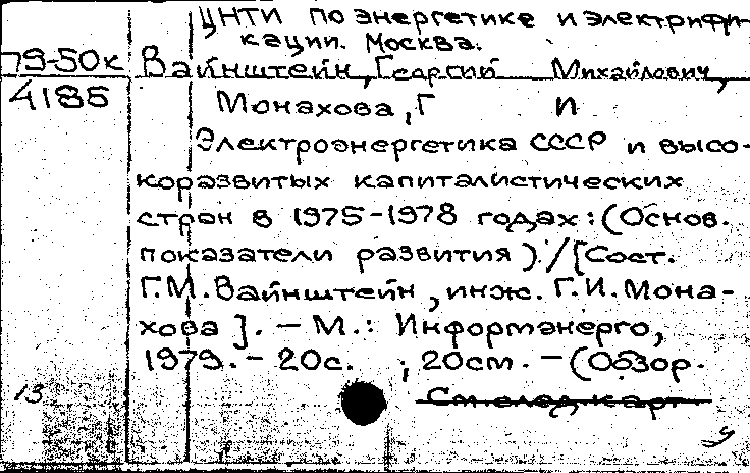 ЦНТИ по энергетике и электрифи-
кации. Москва.
79-50к Вайнштейн, Георгий Михайлович,
4185 Монахова, Г И
Электроэнергетика СССР и высо-
коразвитых капиталистических
стран в 1975-1978 годах: (Основ.
показатели развития)./[Сост.
Г.М. Вайнштейн, инж. Г.И. Мона-
хова]. - М.: Информэнерго,
1979. - 20с. ; 20см. - (Обзор.
13 См след карт